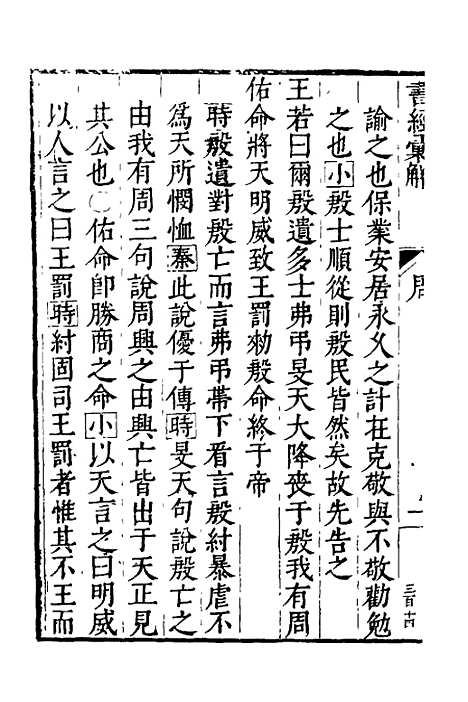 書經彙解
周
諭之也保業安居永久之計在克敬與不敬勸勉
之也小殷士順從則殷民皆然矣故先告之
王若曰爾殷遺多士弗弔旻天大降喪于殷我有周
佑命將天明威致王罰勑殷命終于帝
時殷遺對殷亡而言弗弔帶下看言殷紂暴虐不
爲天所憫恤秦此說優于傳時旻天句說殷亡之
由我有周三句說周興之由興亡皆出于天正見
其公也○佑命卽勝商之命小以天言之曰明威
以人言之曰王罰時紂固司王罰者惟其不王而